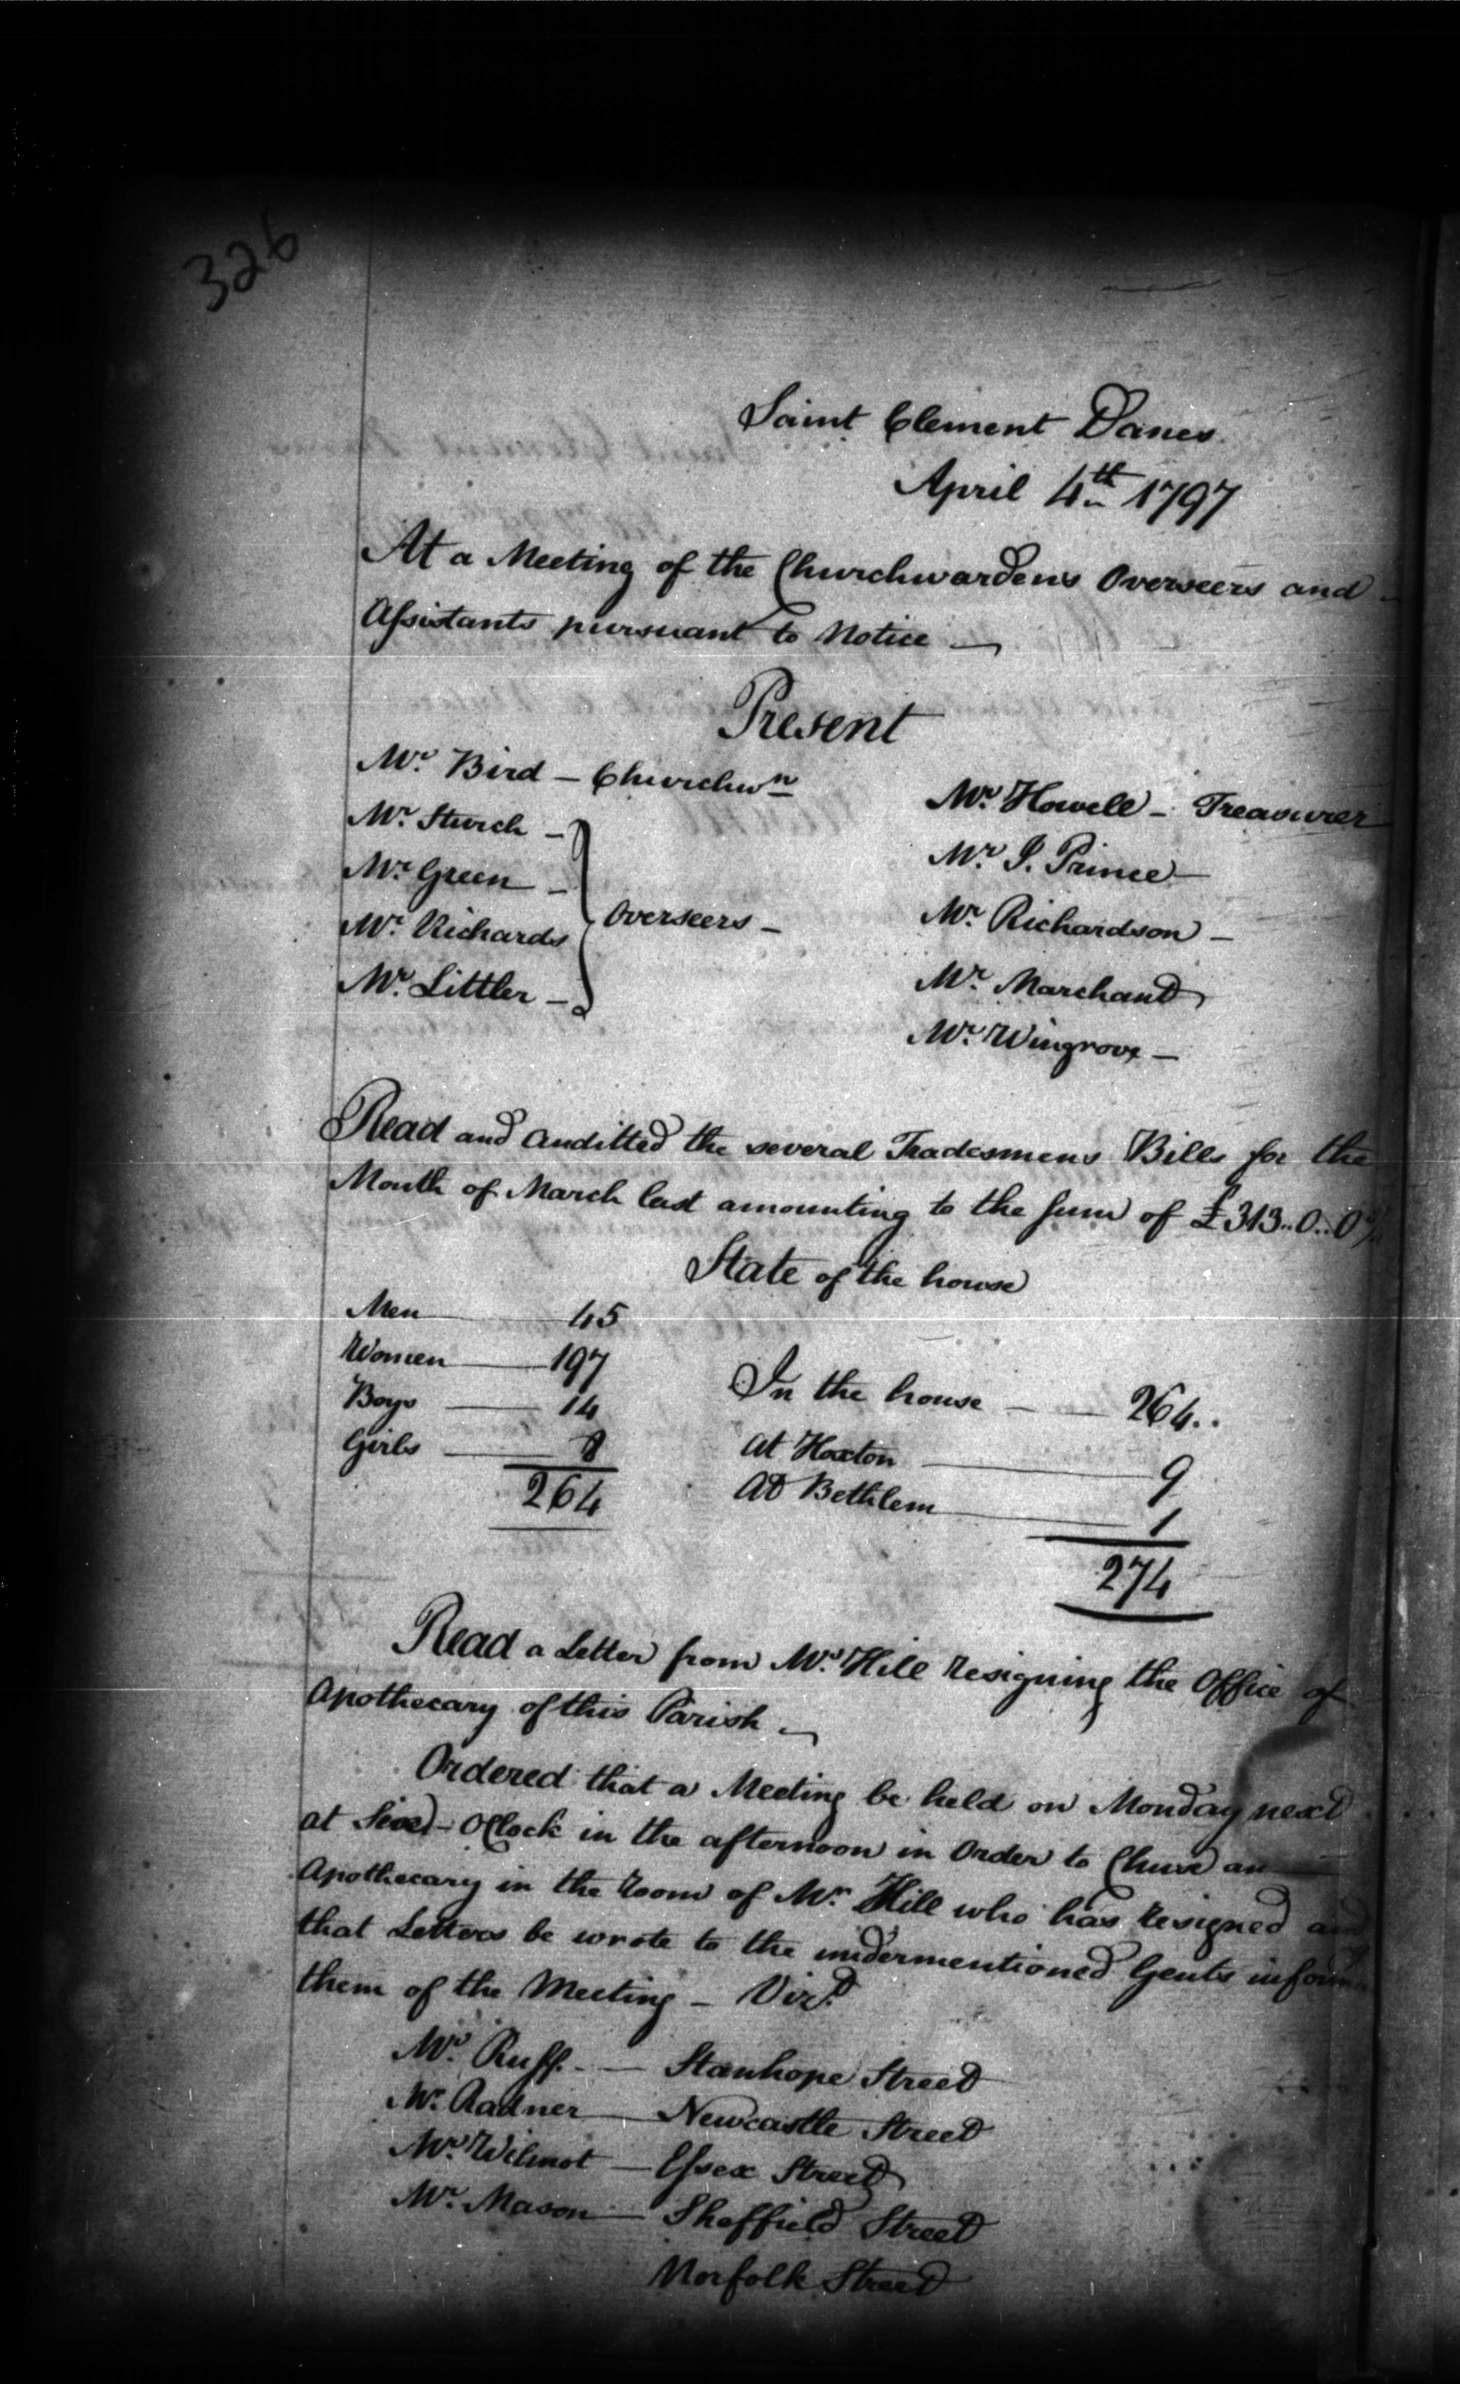 326
Saint Clement Danes
April 4th 1797
At a Meeting of the Churchwardens Overseers and
Assistants pursuant to Notice
Present
Mr. Bird - Churchwn
Mr. Sturch -
Mr. Green -
Mr. Richards
Mr. Littler -
Overseers -
Mr. Howell - Treasurer
Mr. J. Prince
Mr. Richardson -
Mr. Marchand
Mr. Wingrove -
Read and auditted the several Tradesmens Bills for the
Month of March last amounting to the Sum of £313..0..0
State of the house
Men 45
Women 197
Boys 14
Girls 8
264
In the house 264..
At Hoxton 9
At Bethlem 1
274
Read a Letter from Mr. Hill resigning the Office of
Apothecary of this Parish
Ordered that a Meeting be held on Monday next
at Six - OClock in the afternoon in Order to Chuse an
Apothecary in the room of Mr. Hill who has resigned and
that Letters be wrote to the undermentioned Gents inform
them of the Meeting - Vizt.
Mr. Ruff. - Stanhope Street
Mr. Aadner Newcastle Street
Mr. Wilmot - Essex Street
Mr. Mason Sheffield Street
Norfolk Street